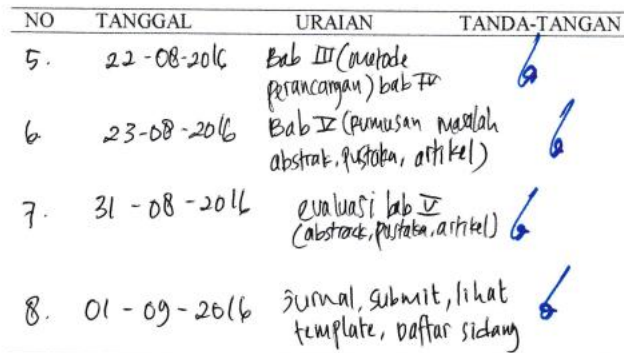 NO TANGGAL URAIAN TANDA-TANGAN
5. 22-08-2016 Bab III (metode
perancangan) bab IV
6 23-08-2016 Bab V (rumusan masalah
abstrak, pustaka, artikel)
7. 31-08-2016 evaluasi bab V
(abstrack, pustaka, artikel)
8. 01-09-2016 jurnal, submit, lihat
template, Daftar sidang